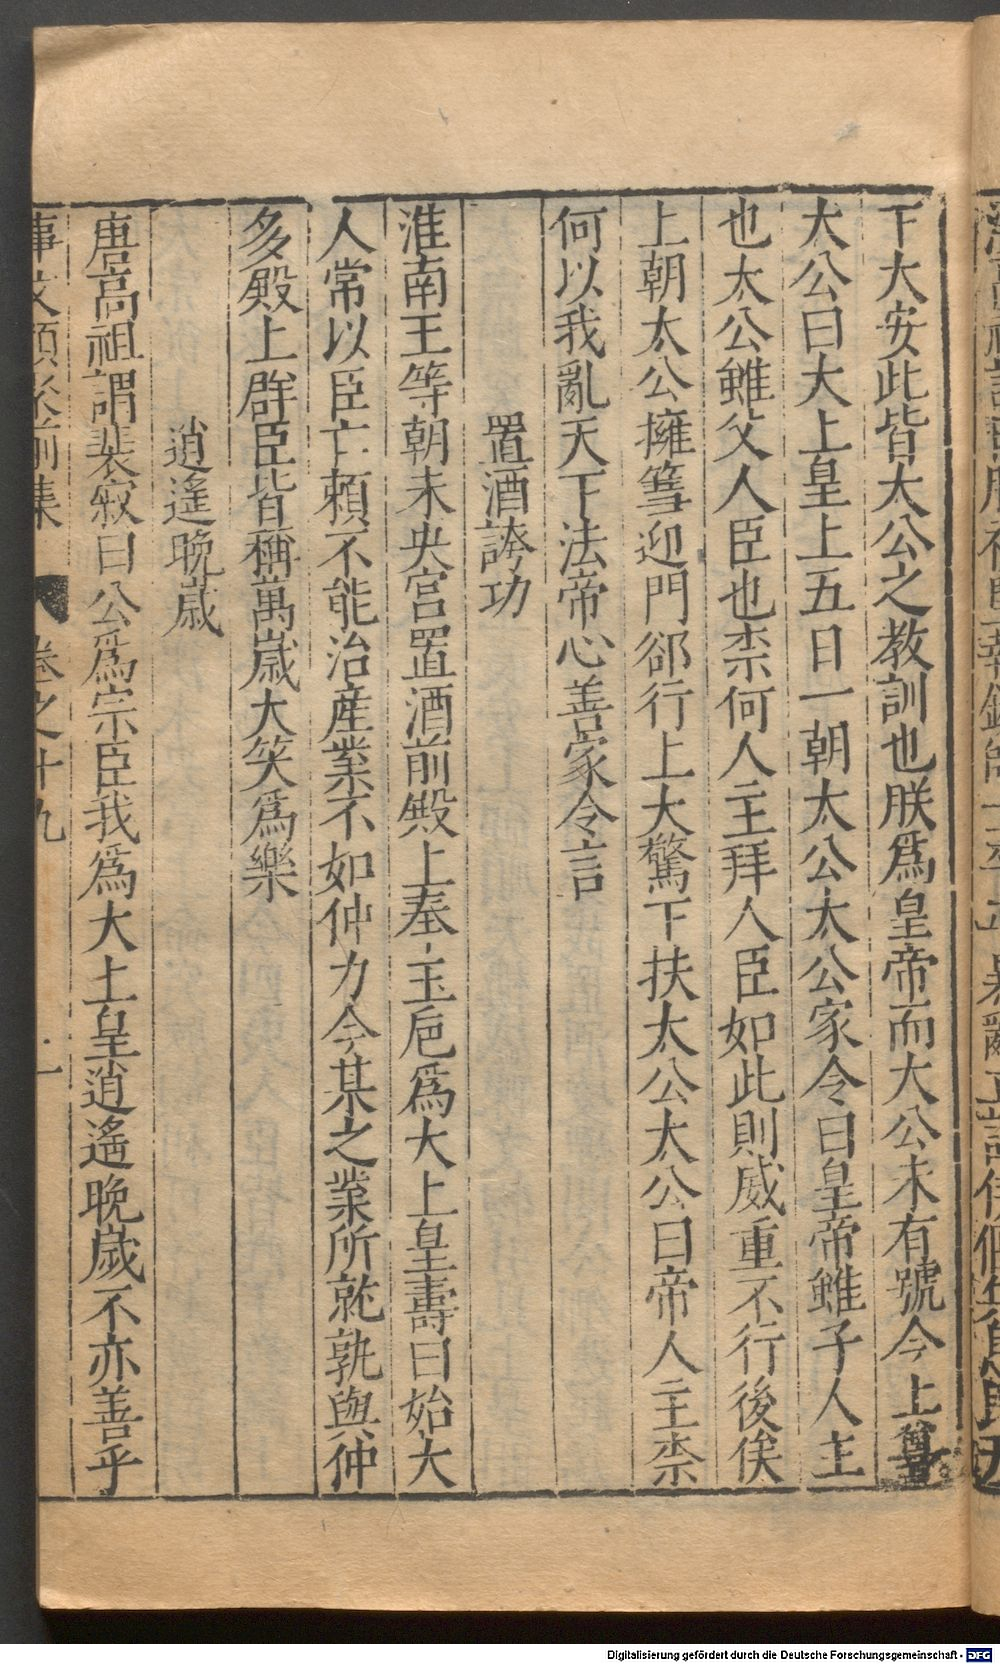 下大安此皆大公之教訓也朕爲皇帝而大公未有號今上尊
太公曰大上皇上五日一朝太公太公家令曰皇帝雖子人主
也太公雖父人臣也柰何人主拜人臣如此則威重不行後俟
上朝太公擁篲迎門郤行上大驚下扶太公太公曰帝人主柰
何以我亂天下法帝心善家令言
置酒誇功
淮南王等朝未央宫置酒前殿上奉玉卮爲大上皇壽曰始大
人常以臣亡頼不能治産業不如仲力今某之業所就孰與仲
多殿上群臣皆稱萬歳大笑爲樂
逍遥晩歳
唐髙祖謂裴寂曰公爲宗臣我爲大上皇逍遙晚歲不亦善乎
事文類聚前集 卷之十九
Digitalisierung gefördert durch die Deutsche Forschungsgemeinschaft - DFG